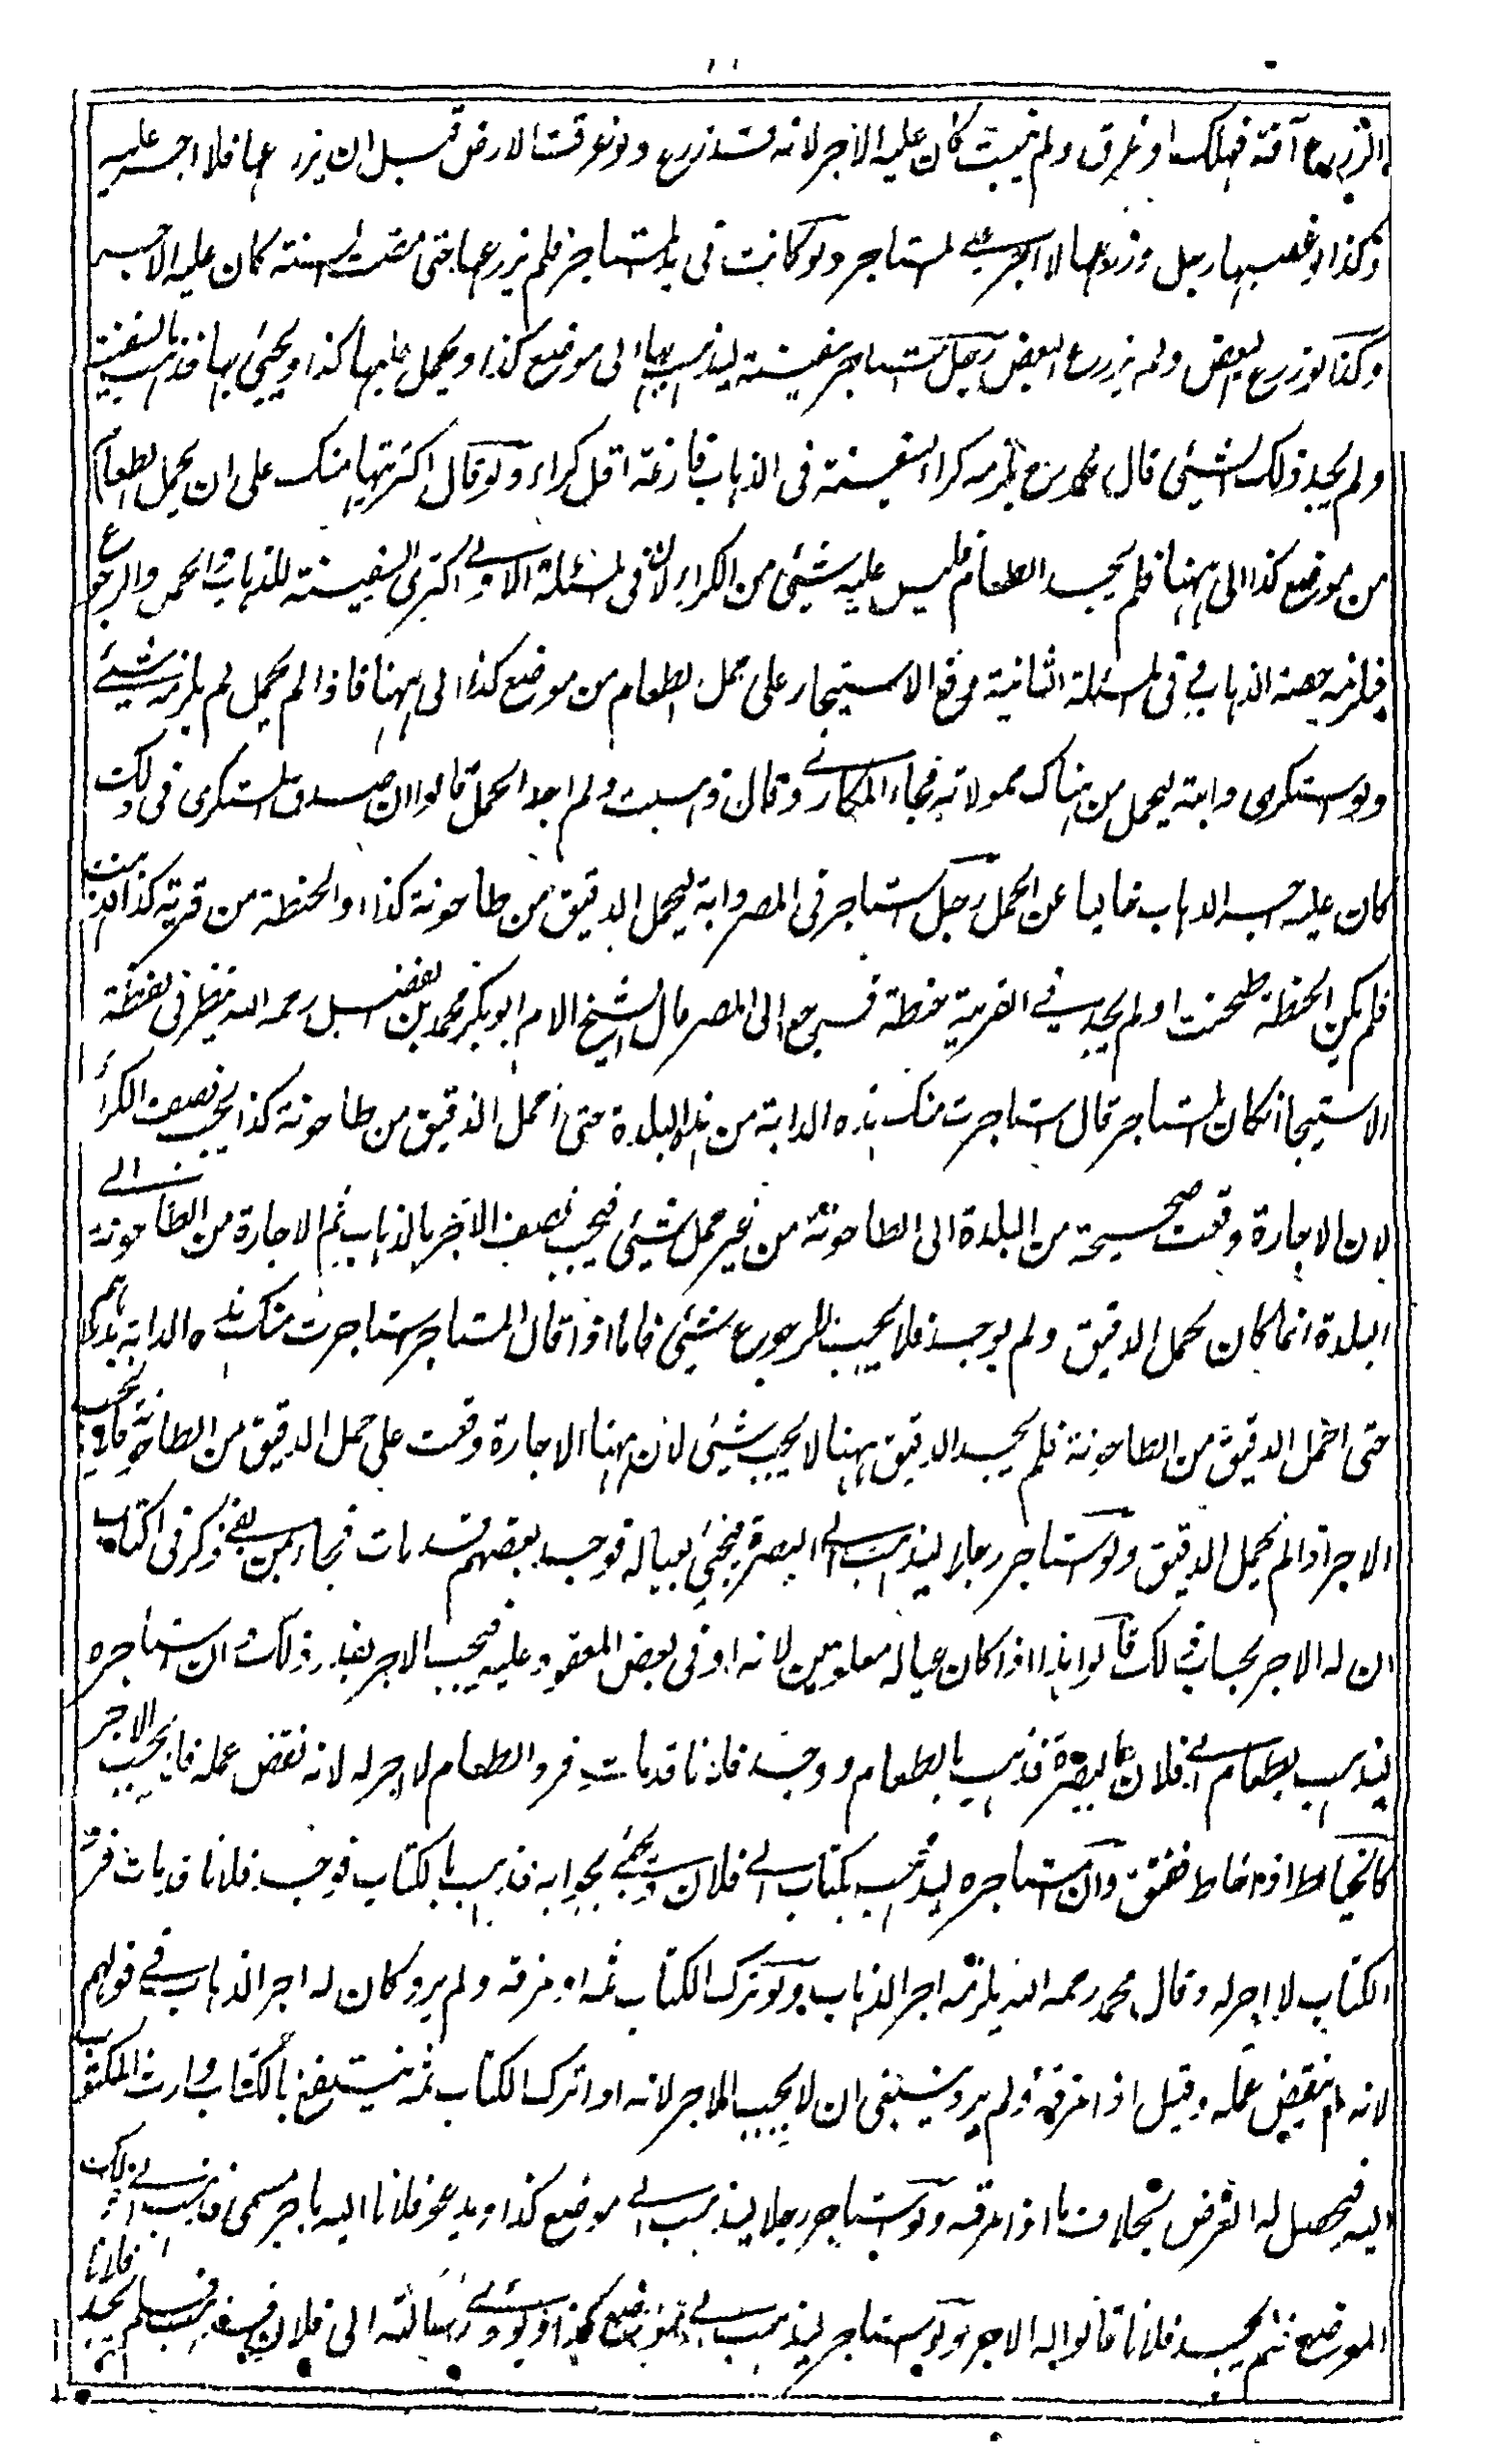 الزرع آفة فهلك او غرق ولم ينبت كان عليه الاجر لانه قد زرع ولو غرقت الارض قبل ان يزرعها فلا اجر عليه
وكذا لو غصبها رجل وزرعها لا اجر على المستاجر ولو كانت في يد المستاجر فلم يزرعها حتى مضت السنة كان عليه الاجر
وكذا لو زرع البعض ولم يزرع البعض رجل استاجر سفينة ليذهب بها الى موضع كذا ويحمل عليها كذا ويجيئ بها فذهب بالسفينة
ولم يجد ذلك الشيئ قال محمد رح يلزمه كراء السفينة في الذهاب فارغة اقل كراء ولو قال اكتريتها منك على ان يحمل الطعام
من موضع كذا الى ههنا فلم يجد الطعام فليس عليه شيئ من الكراء لان في المسئلة الاولى اكترى السفينة للذهاب والحمل والرجوع
فيلزمه حصة الذهاب وفي المسئلة الثانية وقع الاستيجار على حمل الطعام من موضع كذا الى ههنا فاذا لم يحمل لم يلزمه شيئ
ولو استكرى دابة ليحمل من هناك حمولاته فجاء المكاري وقال ذهبت ولم اجد الحمل قالوا ان صدق المستكري في ذلك
كان عليه اجر الذهاب خاليا عن الحمل رجل استاجر في المصر دابة ليحمل الدقيق من طاحونة كذا والحنطة من قرية كذا فذهب
فلم يكن الحنطة طحنت او لم يجد في القرية حنطة فرجع الى المصر قال الشيخ الامام ابو بكر محمد بن الفضل رحمه الله ينظر في لفظة
الاستيجار ان كان المستاجر قال استاجرت منك هذه الدابة من هذه البلدة حتى احمل الدقيق من طاحونة كذا يجب نصف الكراء
لان الاجارة وقعت صحيحة من البلدة الى الطاحونة من غير حمل شيئ فيجب نصف الاجر بالذهاب ثم الاجارة من الطاحونة الى
البلدة انما كان لحمل الدقيق ولم يوجد فلا يجب للرجوع شيئ فاما اذا قال المستاجر استاجرت منك هذه الدابة بدرهم
حتى احمل الدقيق من الطاحونة فلم يجد الدقيق ههنا لا يجب شيئ لان ههنا الاجارة وقعت على حمل الدقيق من الطاحونة فلا يجب
الاجر اذا لم يحمل الدقيق ولو استاجر رجلا ليذهب الى البصرة فيجيئ بعياله فوجد بعضهم قد مات فجاء بمن بقي ذكر في الكتاب
ان له الاجر بحساب ذلك قالوا هذا اذا كان عياله معلومين لانه اوفى بعض المعقود عليه فيجب الاجر بقدر ذلك وان استاجره
ليذهب بطعام الى فلان بالبصرة فذهب بالطعام ووجد فلانا قد مات فرد الطعام لا اجر له لانه نقض عمله فلا يجب الاجر
كالخياط اذا خاط ففتق وان استاجره ليذهب بكتاب الى فلان ويجيئ بجوابه فذهب بالكتاب فوجد فلانا قد مات فرد
الكتاب لا اجر له وقال محمد رحمه الله يلزمه اجر الذهاب ولو ترك الكتاب ثمه او مزقه ولم يرد كان له اجر الذهاب في قولهم
لانه لم ينقض عمله وقيل اذا مزقه ولم يرد ينبغي ان لا يجب الاجر لانه اذا ترك الكتاب ثمه ينتفع بالكتاب وارث المكتوب
اليه فيحصل له الغرض بخلاف ما اذا مزقه ولو استاجر رجلا ليذهب الى موضع كذا ويدعو فلانا اليه باجر مسمى فذهب الى ذلك
الموضع فلم يجد فلانا قالوا له الاجر ولو استاجر ليذهب الى موضع كذا ويؤدي رسالته الى فلان فذهب فلم يجد فلانا